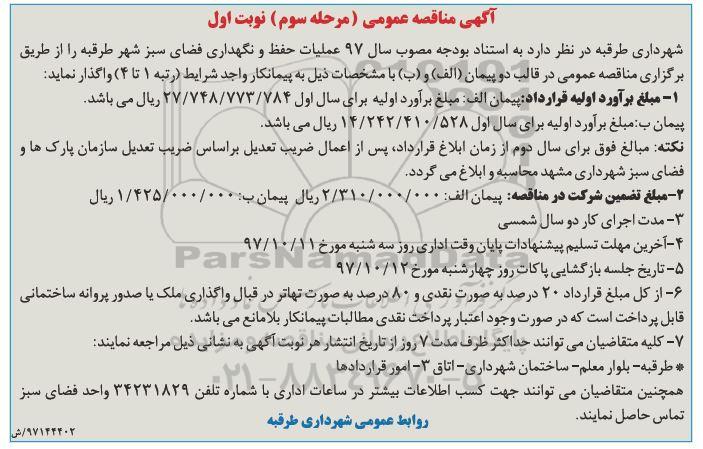 آگهی مناقصه عمومی (مرحله سوم) نوبت اول
شهرداری طرقبه در نظر دارد به استناد بودجه مصوب سال ۹۷ عملیات حفظ و نگهداری فضای سبز شهر طرقبه را از طریق
برگزاری مناقصه عمومی در قالب دو پیمان (الف) و (ب) با مشخصات ذیل به پیمانکار واجد شرایط (رتبه ۱ تا ۴) واگذار نماید:
۱- مبلغ برآورد اولیه قرارداد:پیمان الف: مبلغ برآورد اولیه برای سال اول ۲۷/۷۴۸/۷۷۳/۷۸۴ ریال می باشد.
پیمان ب:مبلغ برآورد اولیه برای سال اول ۱۴/۲۴۲/۴۱۰/۵۲۸ ریال می باشد.
نکته: مبالغ فوق برای سال دوم از زمان ابلاغ قرارداد، پس از اعمال ضریب تعدیل براساس ضریب تعدیل سازمان پارک ها و
فضای سبز شهرداری مشهد محاسبه و ابلاغ می گردد.
۲-مبلغ تضمین شرکت در مناقصه: پیمان الف: ۲/۳۱۰/۰۰۰/۰۰۰ ریال پیمان ب: ۱/۴۲۵/۰۰۰/۰۰۰ ریال
۳- مدت اجرای کار دو سال شمسی
۴-آخرین مهلت تسلیم پیشنهادات پایان وقت اداری روز سه شنبه مورخ ۹۷/۱۰/۱۱
۵- تاریخ جلسه بازگشایی پاکات روز چهارشنبه مورخ ۹۷/۱۰/۱۲
۶- از کل مبلغ قرارداد ۲۰ درصد به صورت نقدی و ۸۰ درصد به صورت تهاتر در قبال واگذاری ملک یا صدور پروانه ساختمانی
قابل پرداخت است که در صورت وجود اعتبار پرداخت نقدی مطالبات پیمانکار بلامانع می باشد.
۷- کلیه متقاضیان می توانند حداکثر ظرف مدت ۷ روز از تاریخ انتشار هر نوبت آگهی به نشانی ذیل مراجعه نمایند:
* طرقبه- بلوار معلم- ساختمان شهرداری- اتاق ۳- امور قراردادها
همچنین متقاضیان می توانند جهت کسب اطلاعات بیشتر در ساعات اداری با شماره تلفن ۳۴۲۳۱۸۲۹ واحد فضای سبز
تماس حاصل نمایند.
روابط عمومی شهرداری طرقبه
۹۷۱۴۴۴۰۲/ش
ParsNamadData
۰۲۱-۸۸۳۴۹۶۷۰-۵